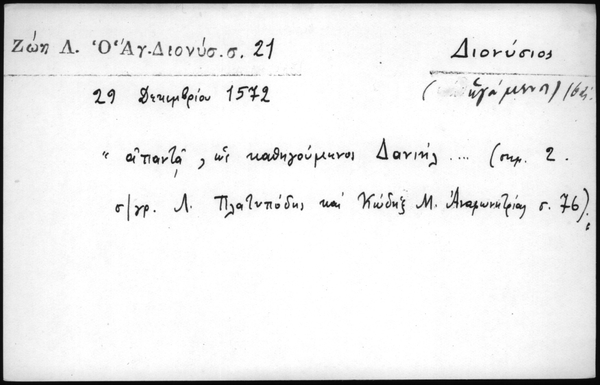 Ζώη Λ. Ὁ Ἅγ. Διονύσ. σ. 21
Διονύσιος
29 Δεκεμβρίου 1572
" ἀπαντᾷ, ὡς καθηγούμενος Δανιήλ ... (σημ. 2.
σ/γρ. Λ. Πλατυπόδης καὶ Κώδηξ Μ. Ἀναφωνητρίας σ. 76).